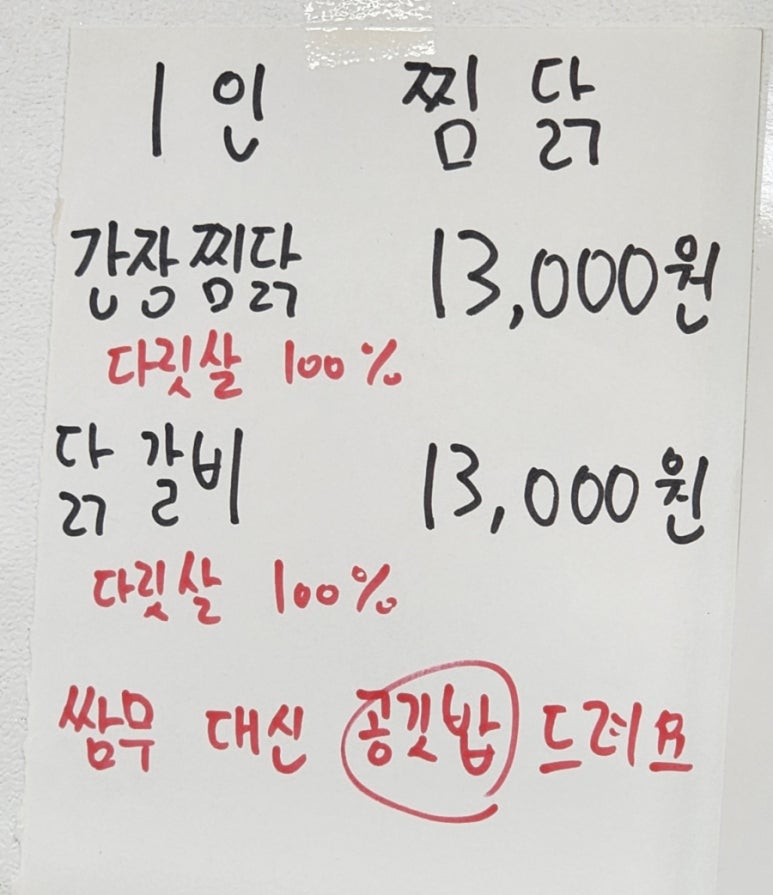 1인 찜닭
간장찜닭 13,000원
다릿살 100%
닭갈비 13,000원
다릿살 100%
쌈무 대신 공깃밥 드려요